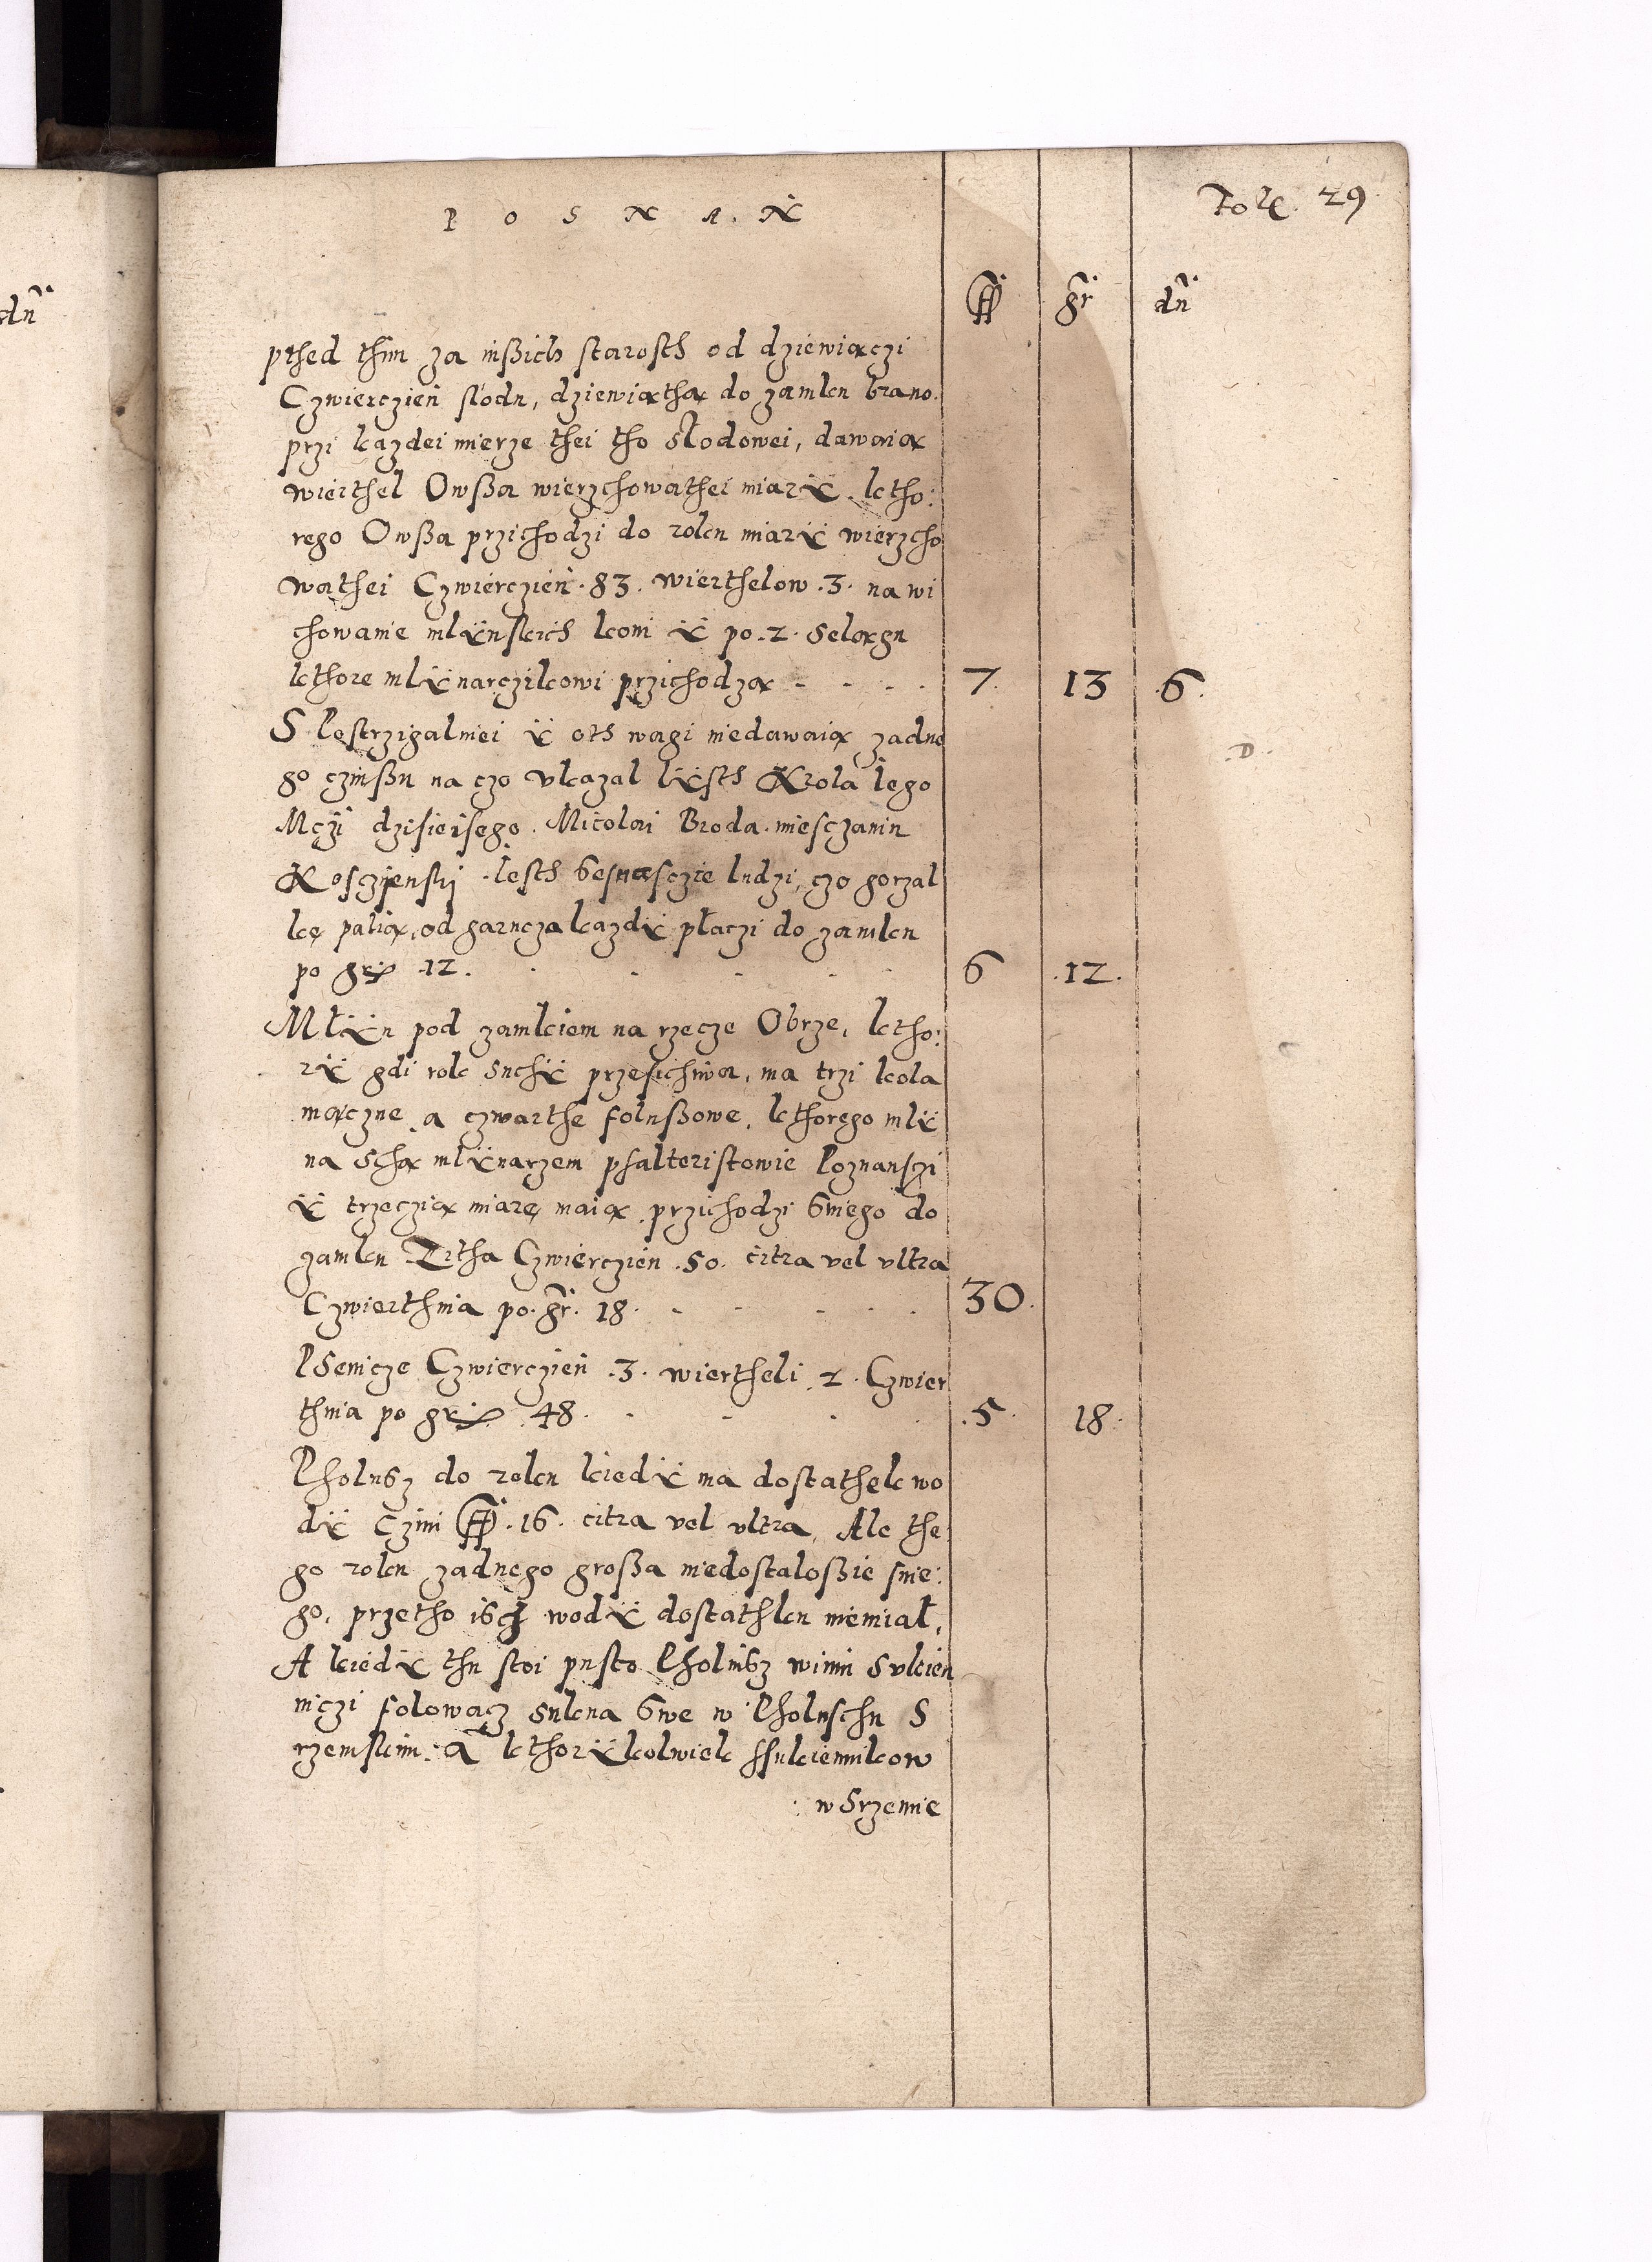 P O S N A. Ń
Fol. 29
fl gr dn
przed thim za inßich starosth od dziewiączi
Czwierczień słodu, dziewiątha do zamku brano.
przi kazdei mierze thei tho słodowei, dawaią
wierthel Owßa wierzchowathei miarÿ. ktho:
rego Owßa przichodzi do roku miarÿ wierzcho
wathei Czwierczień .83. wierthelow .3. na wi
chowanie młÿnskich koni ÿ po .2. selągu
kthore młÿnarczikowi przichodzą - - - - 7. 13 .6.
S Postrzigalniei ÿ oth wagi niedawaią zadne
go czinßu na czo ukazal lÿsth Krola Iego
Mczi dzisieisego. Micolai Broda. miesczanin
Kosczienski. Iesth 6esnasczie ludzi, czo gorzal
kę palią, od garncza kazdÿ płaczi do zamku
po gr 12. - - - - 6 .12.
Młÿn pod zamkiem na rzecze Obrze, ktho:
rÿ gdi rok suchÿ przesichiwa, ma trzi kola
mączne, a czwarthe folußowe, kthorego mlÿ
na Sthą mlÿnarzem psalteristowie Poznanszi
ÿ trzeczią miarę maią. przichodzi 6niego do
zamku Zitha Czwierczien .50. citra vel ultra
Czwierthnia po. gr. 18. - - - - 30.
PSenicze Czwierczień .3. wiertheli .2. Czwier
thnia po gr 48. - - - .5. 18.
Pholu6z do roku kiedÿ ma dostathek wo
dÿ Czini fl .16. citra vel ultra, Ale the
go roku zadnego großa niedostaloßie snie:
go, przetho i6z wodÿ dostathku niemiał,
A kiedÿ thu stoi pusto Pholu6z winni Sukien
niczi folowacz sukna 6we w Pholuschu S
rzemskim: A kthorÿkolwiek ssukiennikow
w Srzemie